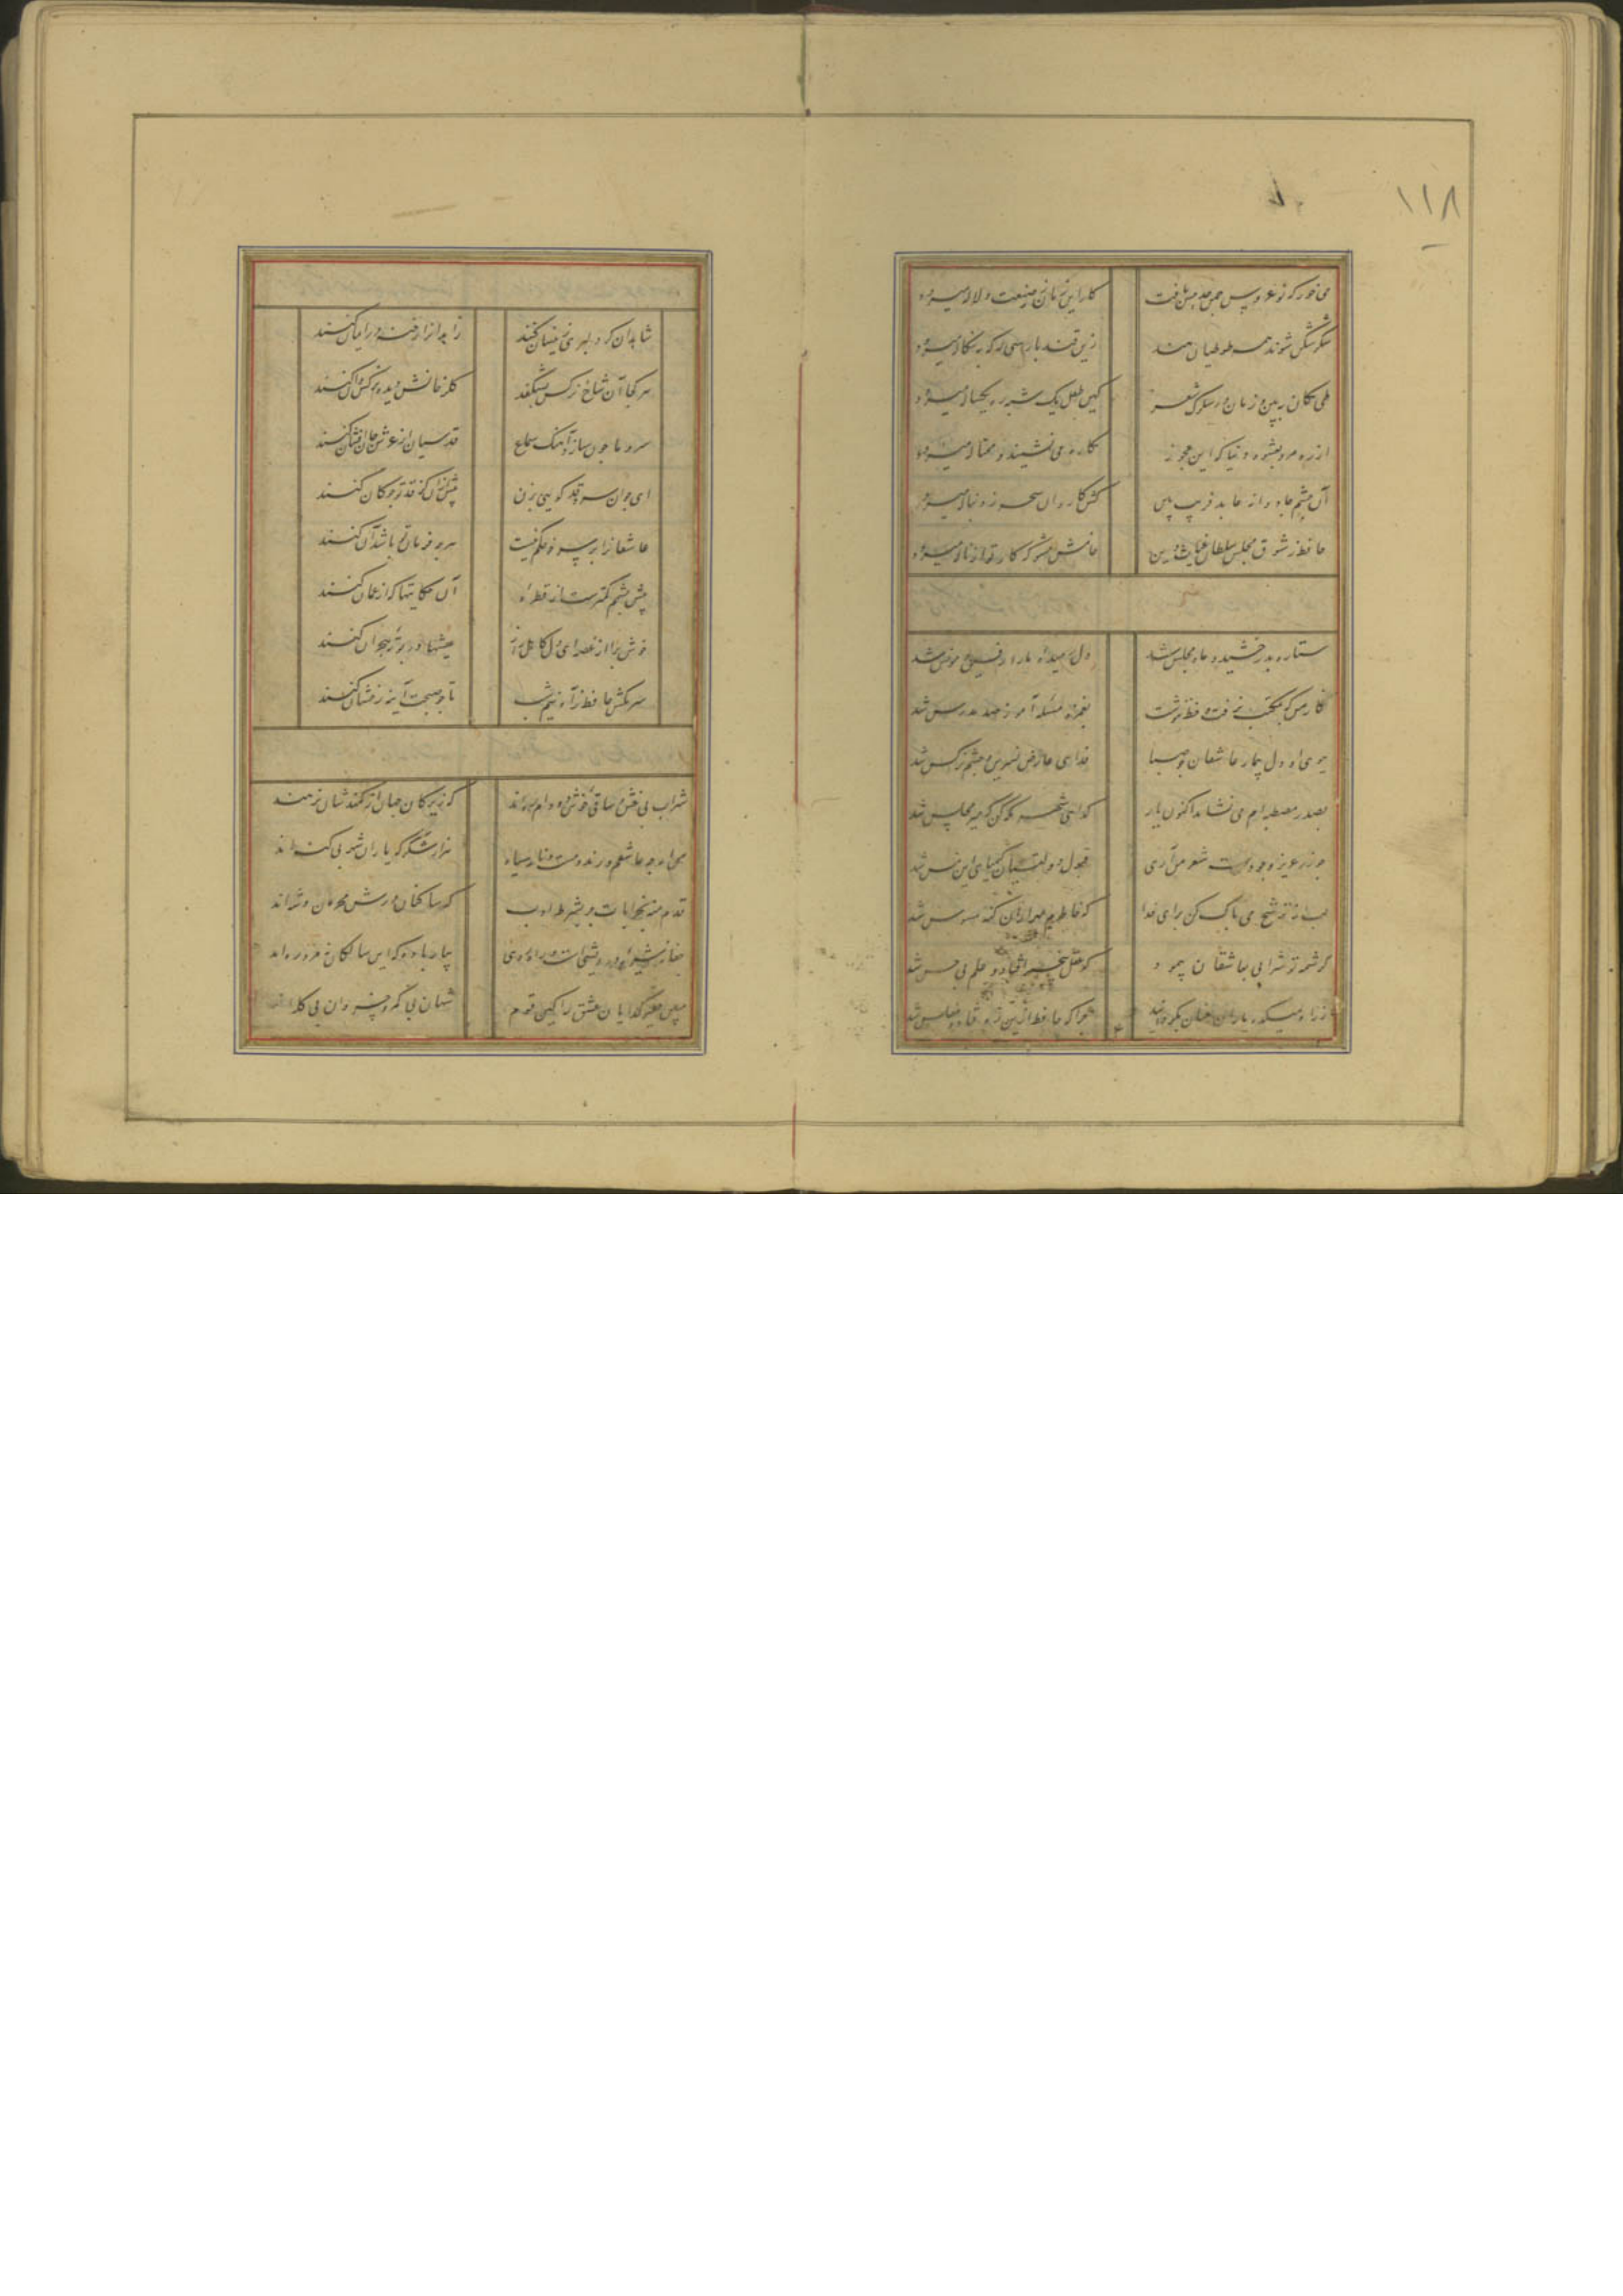 ۱۱۸
می خور که نوعروس چمن حد حسن یافت
کار این زمان ز صنعت دلاله میرود
شکر شکن شوند همه طوطیان هند
زین قند پارسی که به بنگاله میرود
طی مکان ببین و زمان در سلوک شعر
کین طفل یک شبه ره یکساله میرود
از ره مرو بعشوه دنیا که این عجوز
مکاره می نشیند و محتاله میرود
آن چشم جادوانه عابد فریب بین
کش کاروان سحر ز دنباله میرود
حافظ ز شوق مجلس سلطان غیاث دین
خامش مشو که کار تو از ناله میرود
ستاره بدرخشید و ماه مجلس شد
دل رمیده ما را رفیق و مونس شد
نگار من که بمکتب نرفت و خط ننوشت
بغمزه مسئله آموز صد مدرس شد
ببوی او دل بیمار عاشقان چو صبا
فدای عارض نسرین و چشم نرگس شد
بصدر مصطبه ام می نشاند اکنون یار
گدای شهر نگه کن که میر مجلس شد
چو زر عزیز وجودست شعر من آری
قبول دولتیان کیمیای این مس شد
لب از ترشح می پاک کن برای خدا
که خاطرم بهزاران گنه موسوس شد
کرشمه تو شرابی بعاشقان پیمود
که عقل بیخبر افتاد و علم بی حس شد
ز راه میکده یاران عنان بگردانید
چرا که حافظ ازین راه رفت و مفلس شد
شاهدان گر دلبری زینسان کنند
زاهدانرا رخنه در ایمان کنند
هر کجا آن شاخ نرگس بشکفد
گلرخانش دیده نرگس دان کنند
سرو ما چون سازد آهنگ سماع
قدسیان از عرش جان افشان کنند
ای جوان سرو قد گویی بزن
پیش ازان کز قدت چوگان کنند
عاشقانرا بر سر خود حکم نیست
هرچه فرمان تو باشد آن کنند
پیش چشمم کمترست از قطره
آن حکایتها که از عمان کنند
خوش برآ از غصه ای دل کاهل راز
عیشها در بوته هجران کنند
سر مکش حافظ ز آه نیم شب
تا چو صبحت آینه رخشان کنند
شراب بی غش و ساقی خوش دو دام رهند
که زیرکان جهان از کمندشان نرهند
من ارچه عاشقم و رند و مست و نامه سیاه
هزار شکر که یاران شهر بی گنه اند
قدم منه بخرابات جز بشرط ادب
که ساکنان درش محرمان پادشه اند
جفا نه شیوه درویشیست و راهروی
بیار باده که این سالکان نه مرد رهند
مبین حقیر گدایان عشق را کین قوم
شهان بی کمر و خسروان بی کله اند